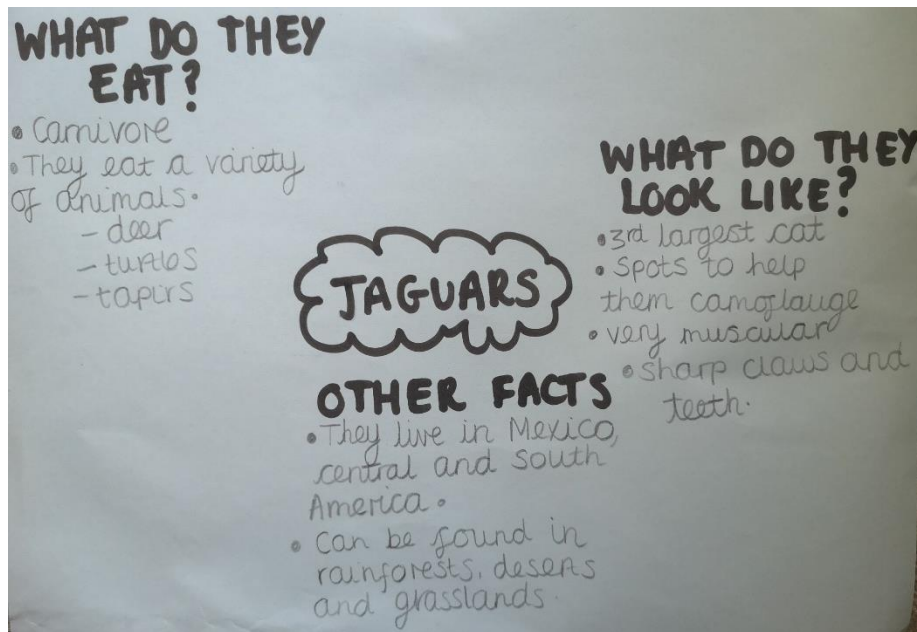 WHAT DO THEY
EAT?
• Carnivore
• They eat a variety
of animals.
- deer
- turtles
- tapirs
JAGUARS
WHAT DO THEY
LOOK LIKE?
• 3rd largest cat
• spots to help
them camoflauge
• very muscular
• sharp claws and
teeth.
OTHER FACTS
• They live in Mexico,
central and south
America.
• Can be found in
rainforests, deserts
and grasslands.